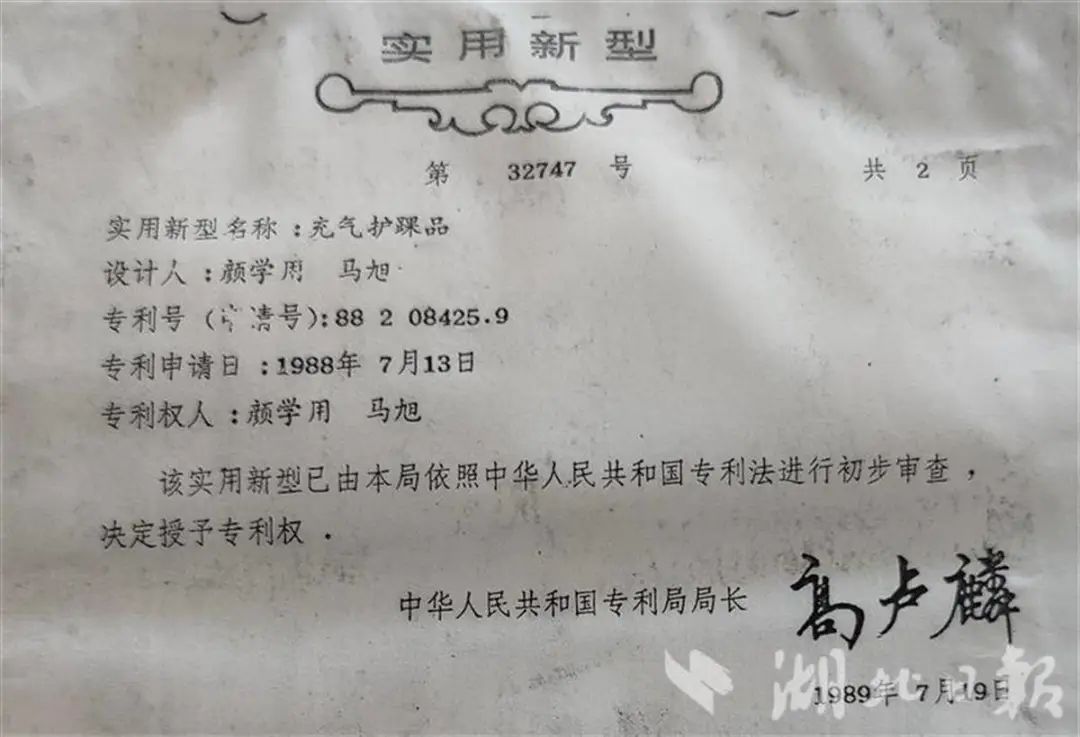 实用新型
第 32747 号 共 2 页
实用新型名称：充气护踝品
设计人：颜学用 马旭
专利号（申请号）：88 2 08425.9
专利申请日：1988年 7月13日
专利权人：颜学用 马旭
该实用新型已由本局依照中华人民共和国专利法进行初步审查，
决定授予专利权．
中华人民共和国专利局局长 高卢麟
1989年 7月19日
湖北日报